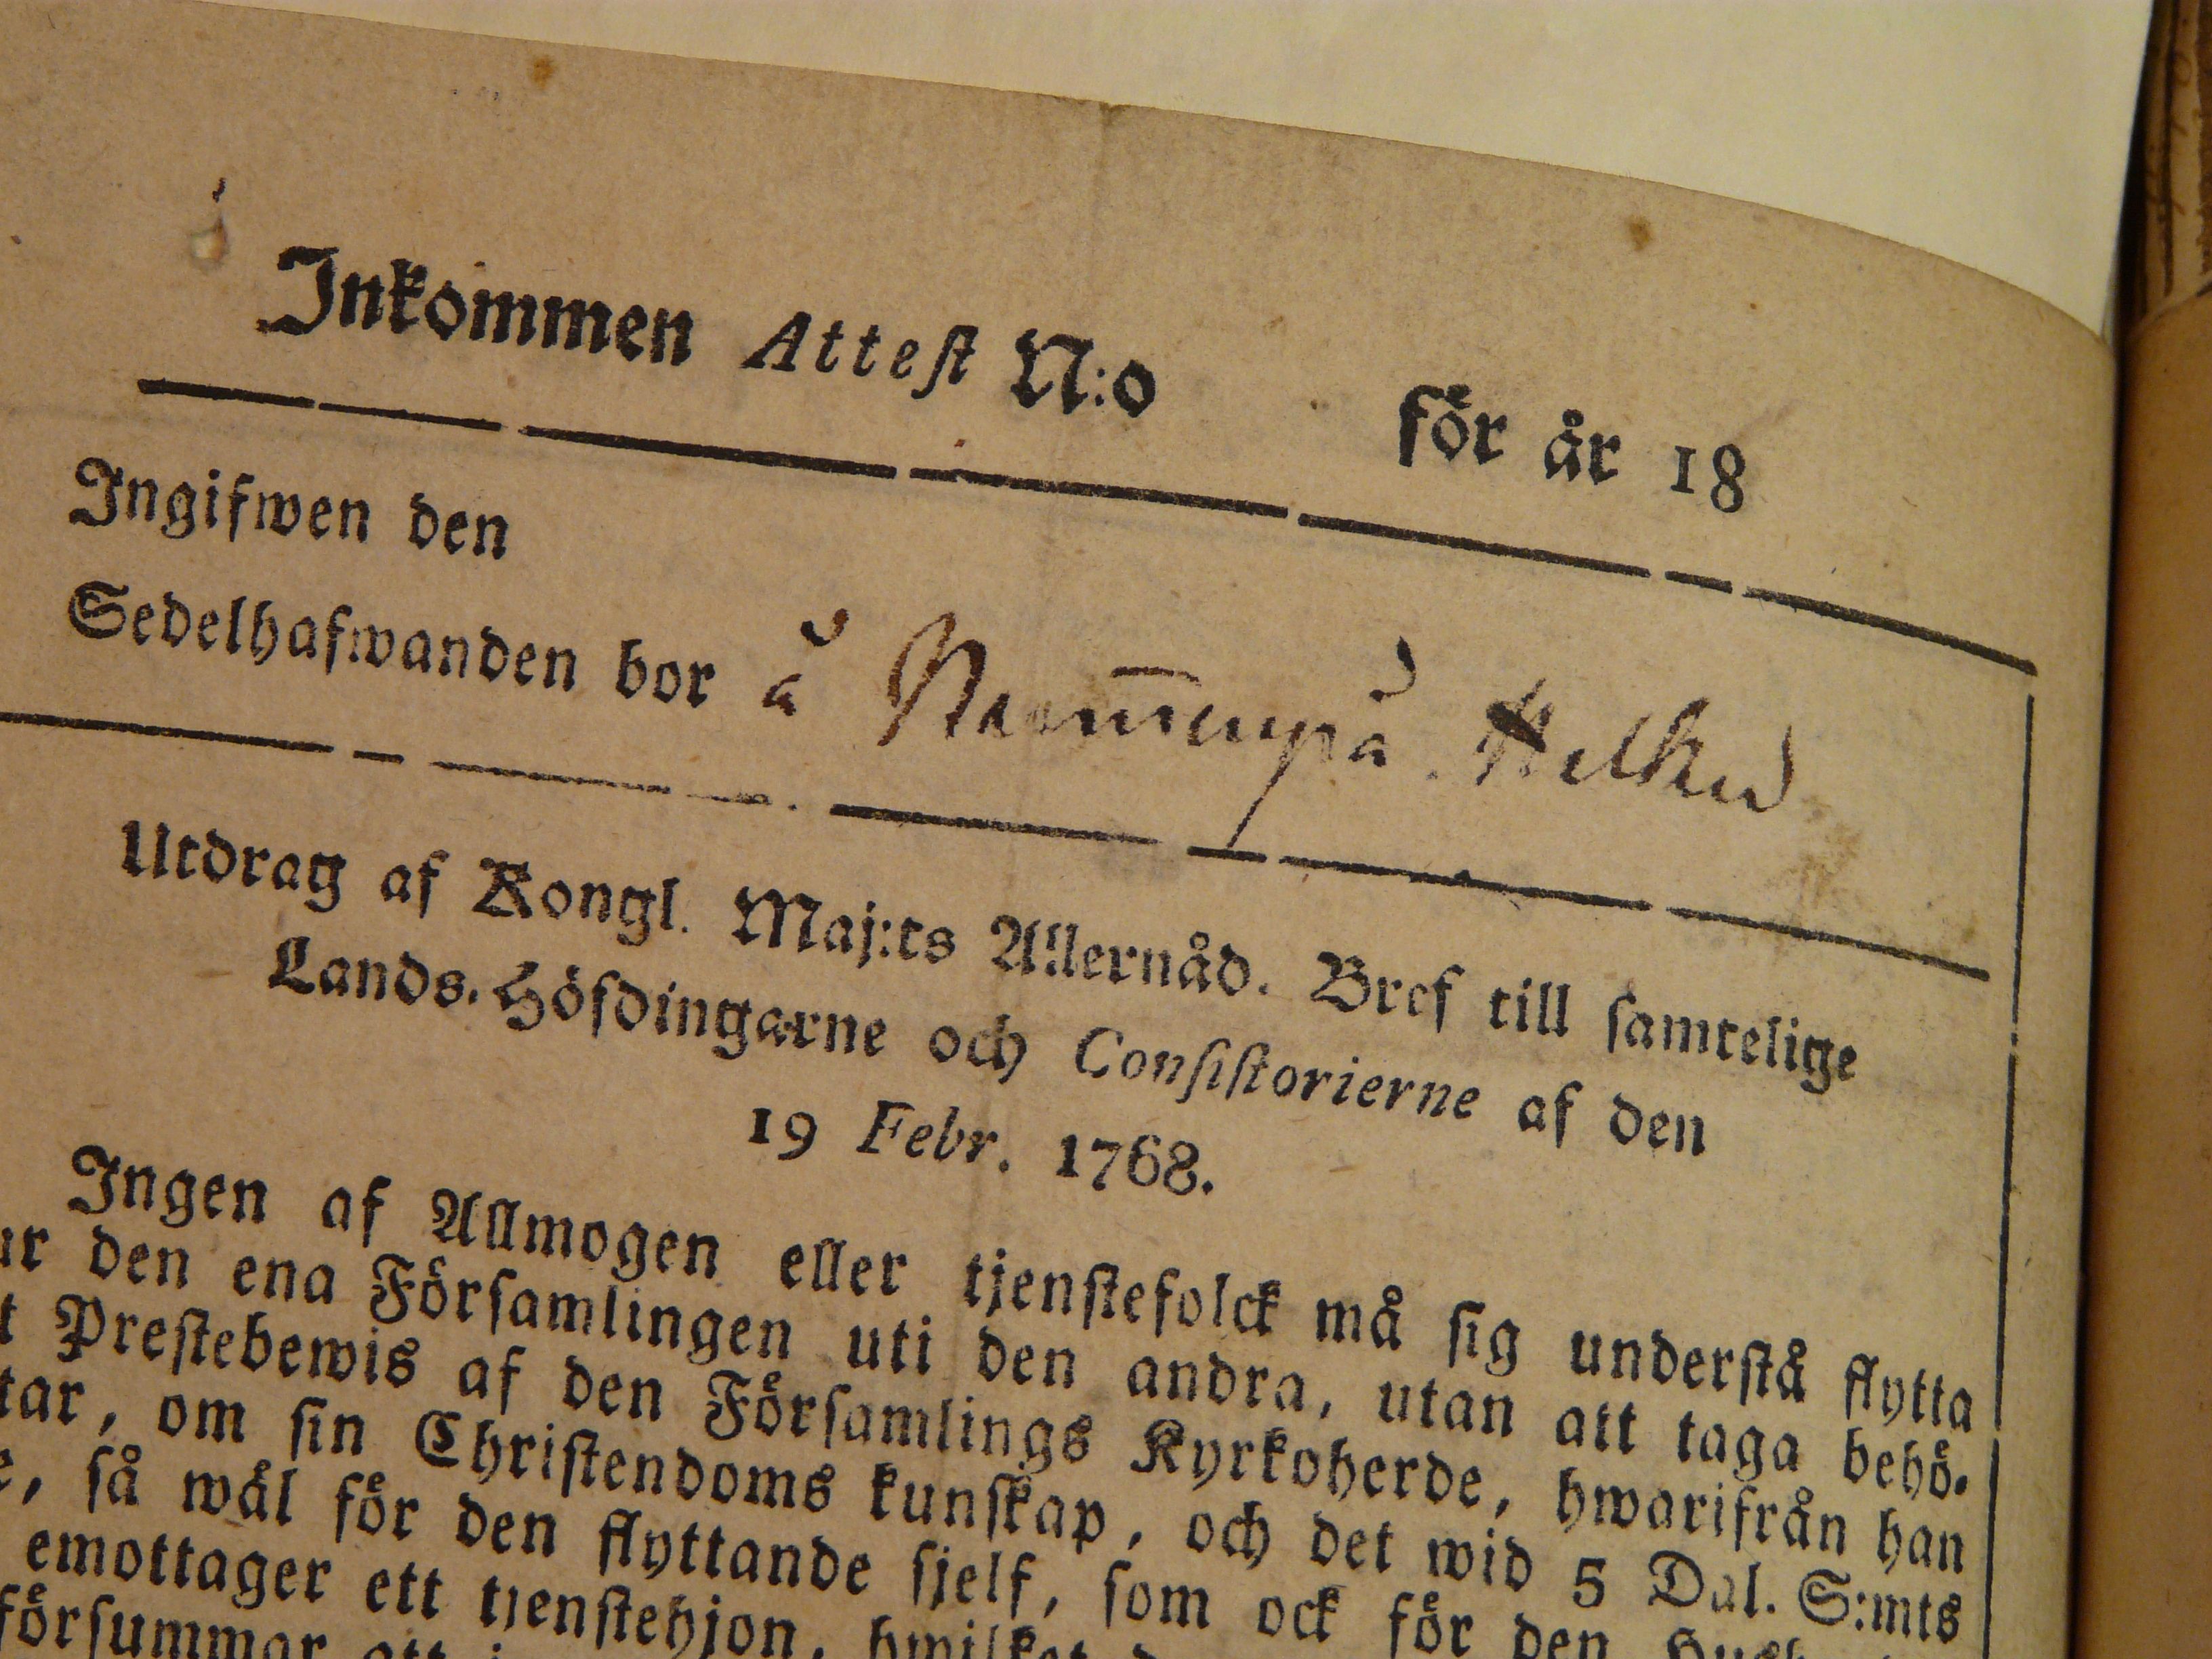 Inkommen Attest N:o för år 18
Ingifwen den
Sedelhafwanden bor å
Utdrag af Kongl. Maj:ts Allernåd. Bref till samtelige
Lands-Höfdingarne och Consistorierne af den
19 Febr. 1768.
Ingen af Allmogen eller tjenstefolck må sig understå flytta
den ena Församlingen uti den andra, utan att taga behö-
Prestebewis af den Församlings Kyrkoherde, hwarifrån han
tar, om sin Christendoms kunskap, och det wid 5 Dal. S:mts
så wäl för den flyttande sjelf, som ock för den
emottager ett tjenstehjon, hwilket
försummar att